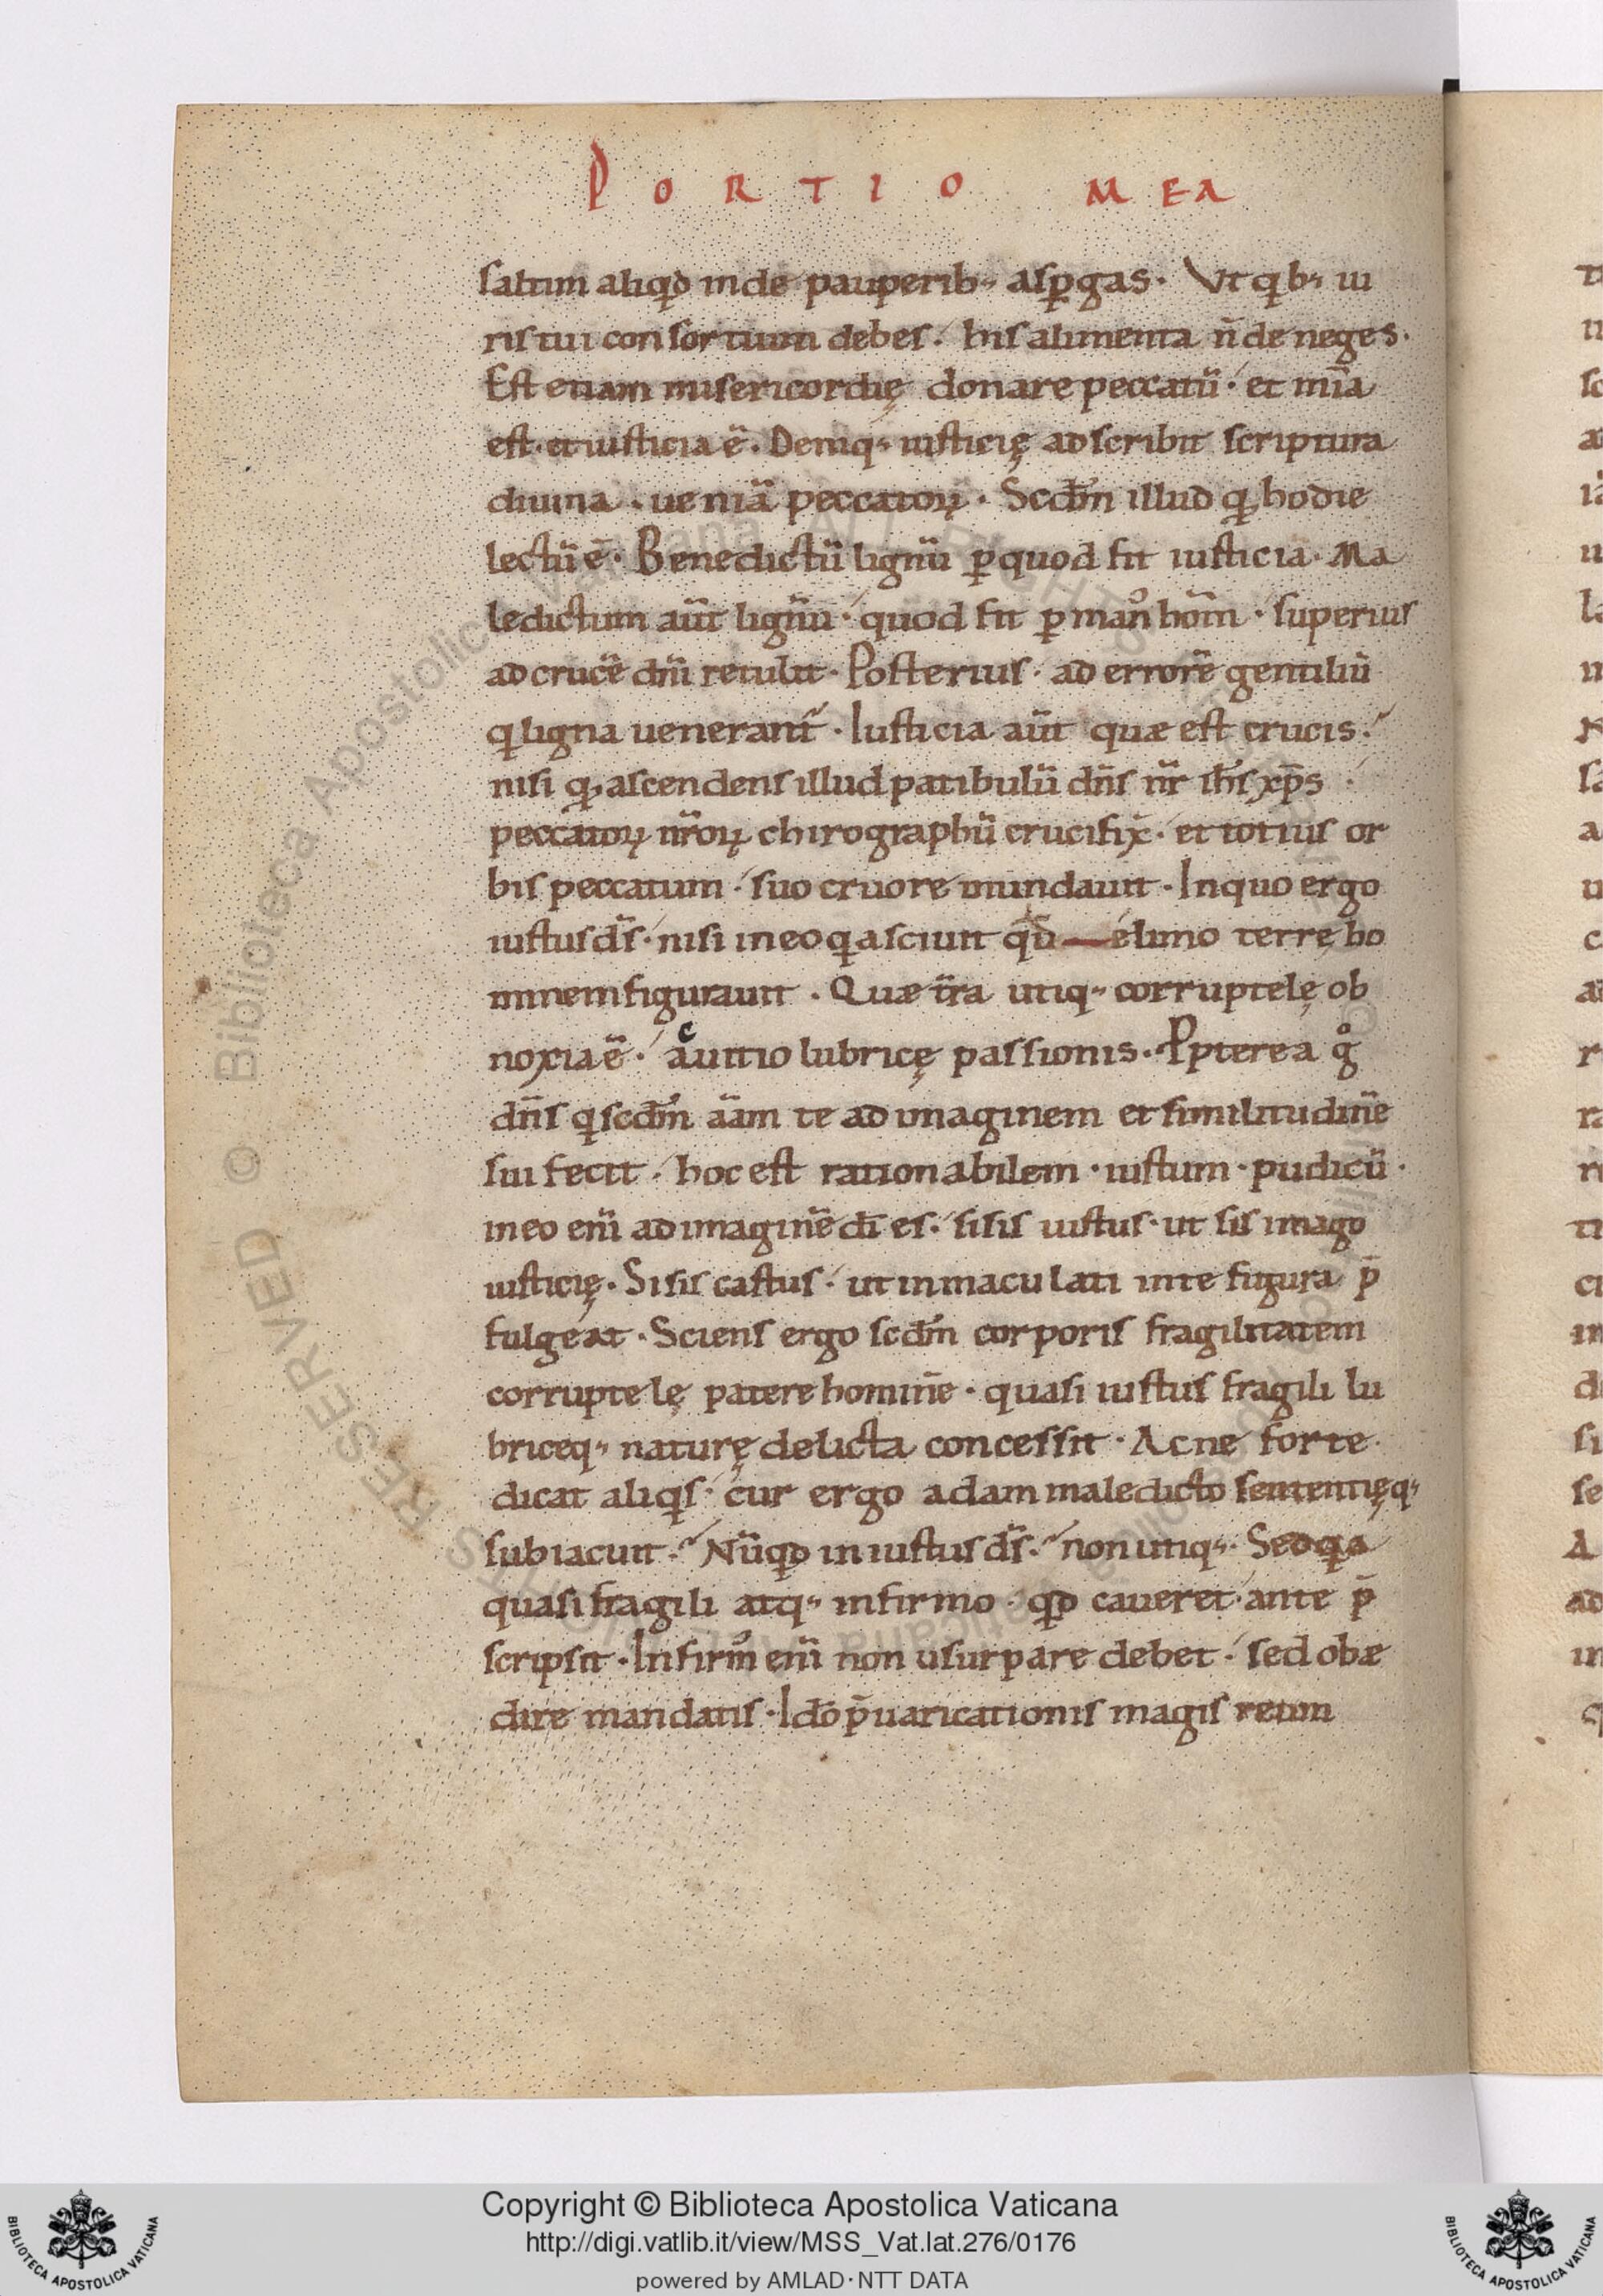 PORTIO MEA
saltim aliqd inde pauperib; aspgas. Vt qb; iu
ris tui consortium debes. his alimenta n̄ deneges.
Est etiam misericordię donare peccatū. et mīa
est. et iusticia ē. Deniq; iusticię adscribit scriptura
diuina. ueniā peccatoꝝ. Scdm̄ illud qꝫ hodie
lectū ē. Benedictū lignū ꝑquod fit iusticia. Ma
ledictum aūt lignū. quod fit ꝑ man᾽ hom̄. superius
ad crucē dn̄i retulit. Posterius. ad errorē gentiliū
q ligna uenerant̄. Iusticia aūt quæ est crucis.
nisi qꝫ ascendens illud patibulū dn̄s nr̄ ih̄s xp̄s
peccatoꝝ nr̄oꝝ chirographū crucifix̄. et totius or
bis peccatum. suo cruore mundauit. In quo ergo
iustus ds̄. nisi in eo q asciuit qd̄ — e limo terrę ho
minem figurauit. Quæ tr̄a utiq; corruptelę ob
noxia ē. ac uitio lubricę passionis. Ꝓpterea g̊
dn̄s q scdm̄ aīam te ad imaginem et similitudinē
sui fecit. hoc est rationabilem. iustum. pudicū.
in eo enī ad imaginē dī es. si sis iustus. ut sis imago
iusticię. Si sis castus. ut inmaculati in te figura p̄
fulgeat. Sciens ergo scdm̄ corporis fragilitatem
corruptelę patere hominē. quasi iustus fragili lu
briceq; naturę delicta concessit. Ac ne forte
dicat aliqs. cur ergo adam maledicto sententięq;
subiacuit. Nūqd iniustus ds̄. non utiq;. Sed qa
quasi fragili atq; infirmo. qd caueret ante p̄
scripsit. Infirm᾽ enī non usurpare debet. sed obæ
dire mandatis. Idō p̄uaricationis magis reum
Copyright © Biblioteca Apostolica Vaticana
http://digi.vatlib.it/view/MSS_Vat.lat.276/0176
powered by AMLAD·NTT DATA